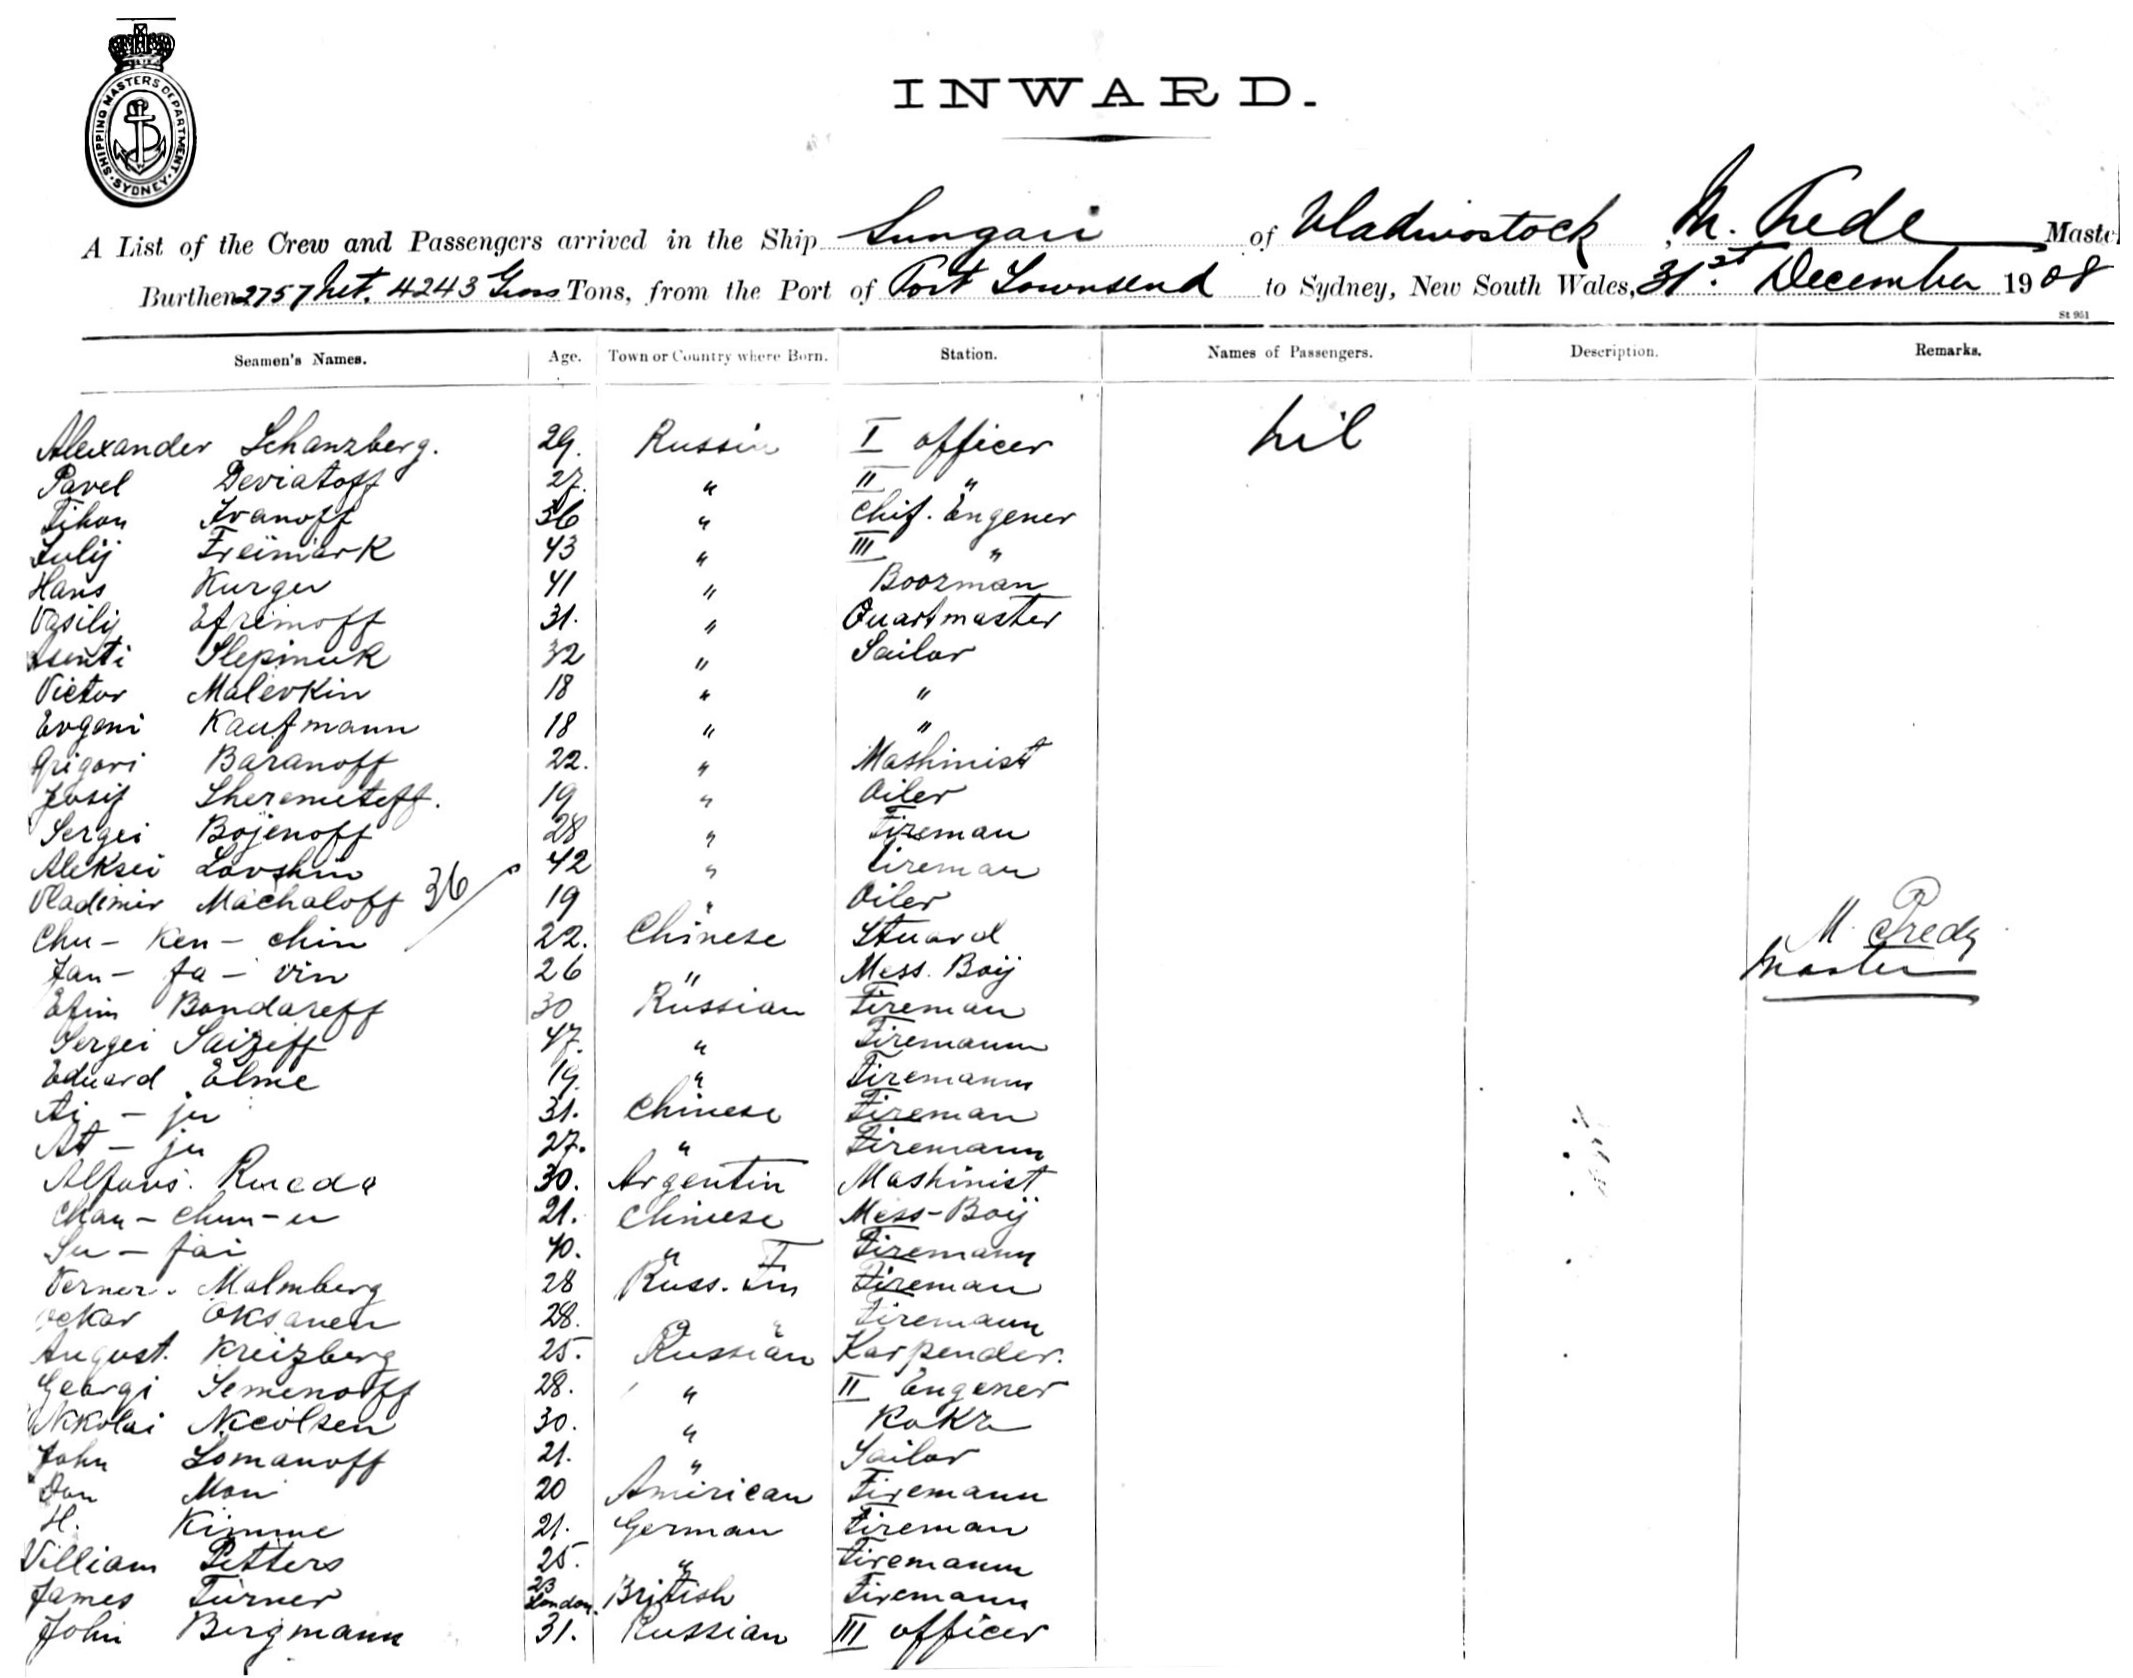 SHIPPING MASTERS DEPARTMENT. SYDNEY.
INWARD.
A List of the Crew and Passengers arrived in the Ship Sungari of Vladivostock, M. Maste
Burthen 2757 Net. 4243 Gross Tons, from the Port of Port Townsend to Sydney, New South Wales, 31st December 1908
St 951
Seamen's Names. Age. Town or Country where Born. Station. Names of Passengers. Description. Remarks.
Alexander Schanzberg. 29. Russia I officer nil
Pavel Deviatoff 27. " II "
Tihon Ivanoff 36 " Chif. Engener
Julij Freimark 43 " III "
Hans Kurger 41 " Boozman
Vasilij Efrimoff 31. " Quartmaster
Slepinuk 32 " Sailor
Victor Malevkin 18 " "
Evgeni Kaufmann 18 " "
Grigori Baranoff 22. " Mashinist
Josif Sheremeteff. 19 " Oiler
Sergei Bojenoff 28 " Fireman
Aleksei Lovshin 42 " Fireman
Vladimir Machaloff 36 19 " Oiler
Chu - Ken - Chin 22. Chinese Stuard M.
Jan - fa - vin 26 " Mess. Boij Master
Efim Bondareff 30 Russian Fireman
Sergei Saizeff 47. " Firemann
Eduard Elme 19. " Firemann
Ai - ju 31. Chinese Fireman
At - ju 27. " Firemann
Alfons. Rueda 30. Argentin Mashinist
Chan - Chun - u 21. Chinese Mess-Boij
Su - fai 40. " Firemann
Verner. Malmberg 28 Russ. Fin Fireman
Oksanen 28. " Firemann
August. Kreizberg 25. Russian Karpender.
Georgi Semenoff 28. " II Engener
Nikolai Nicolsen 30. " Kokk
John Lomanoff 21. " Sailor
Man 20 Amirican Firemann
H. Kimme 21. German Fireman
Villiam Petters 25. " Firemann
James Turner 23 London. British Firemann
John Bergmann 31. Russian III officer